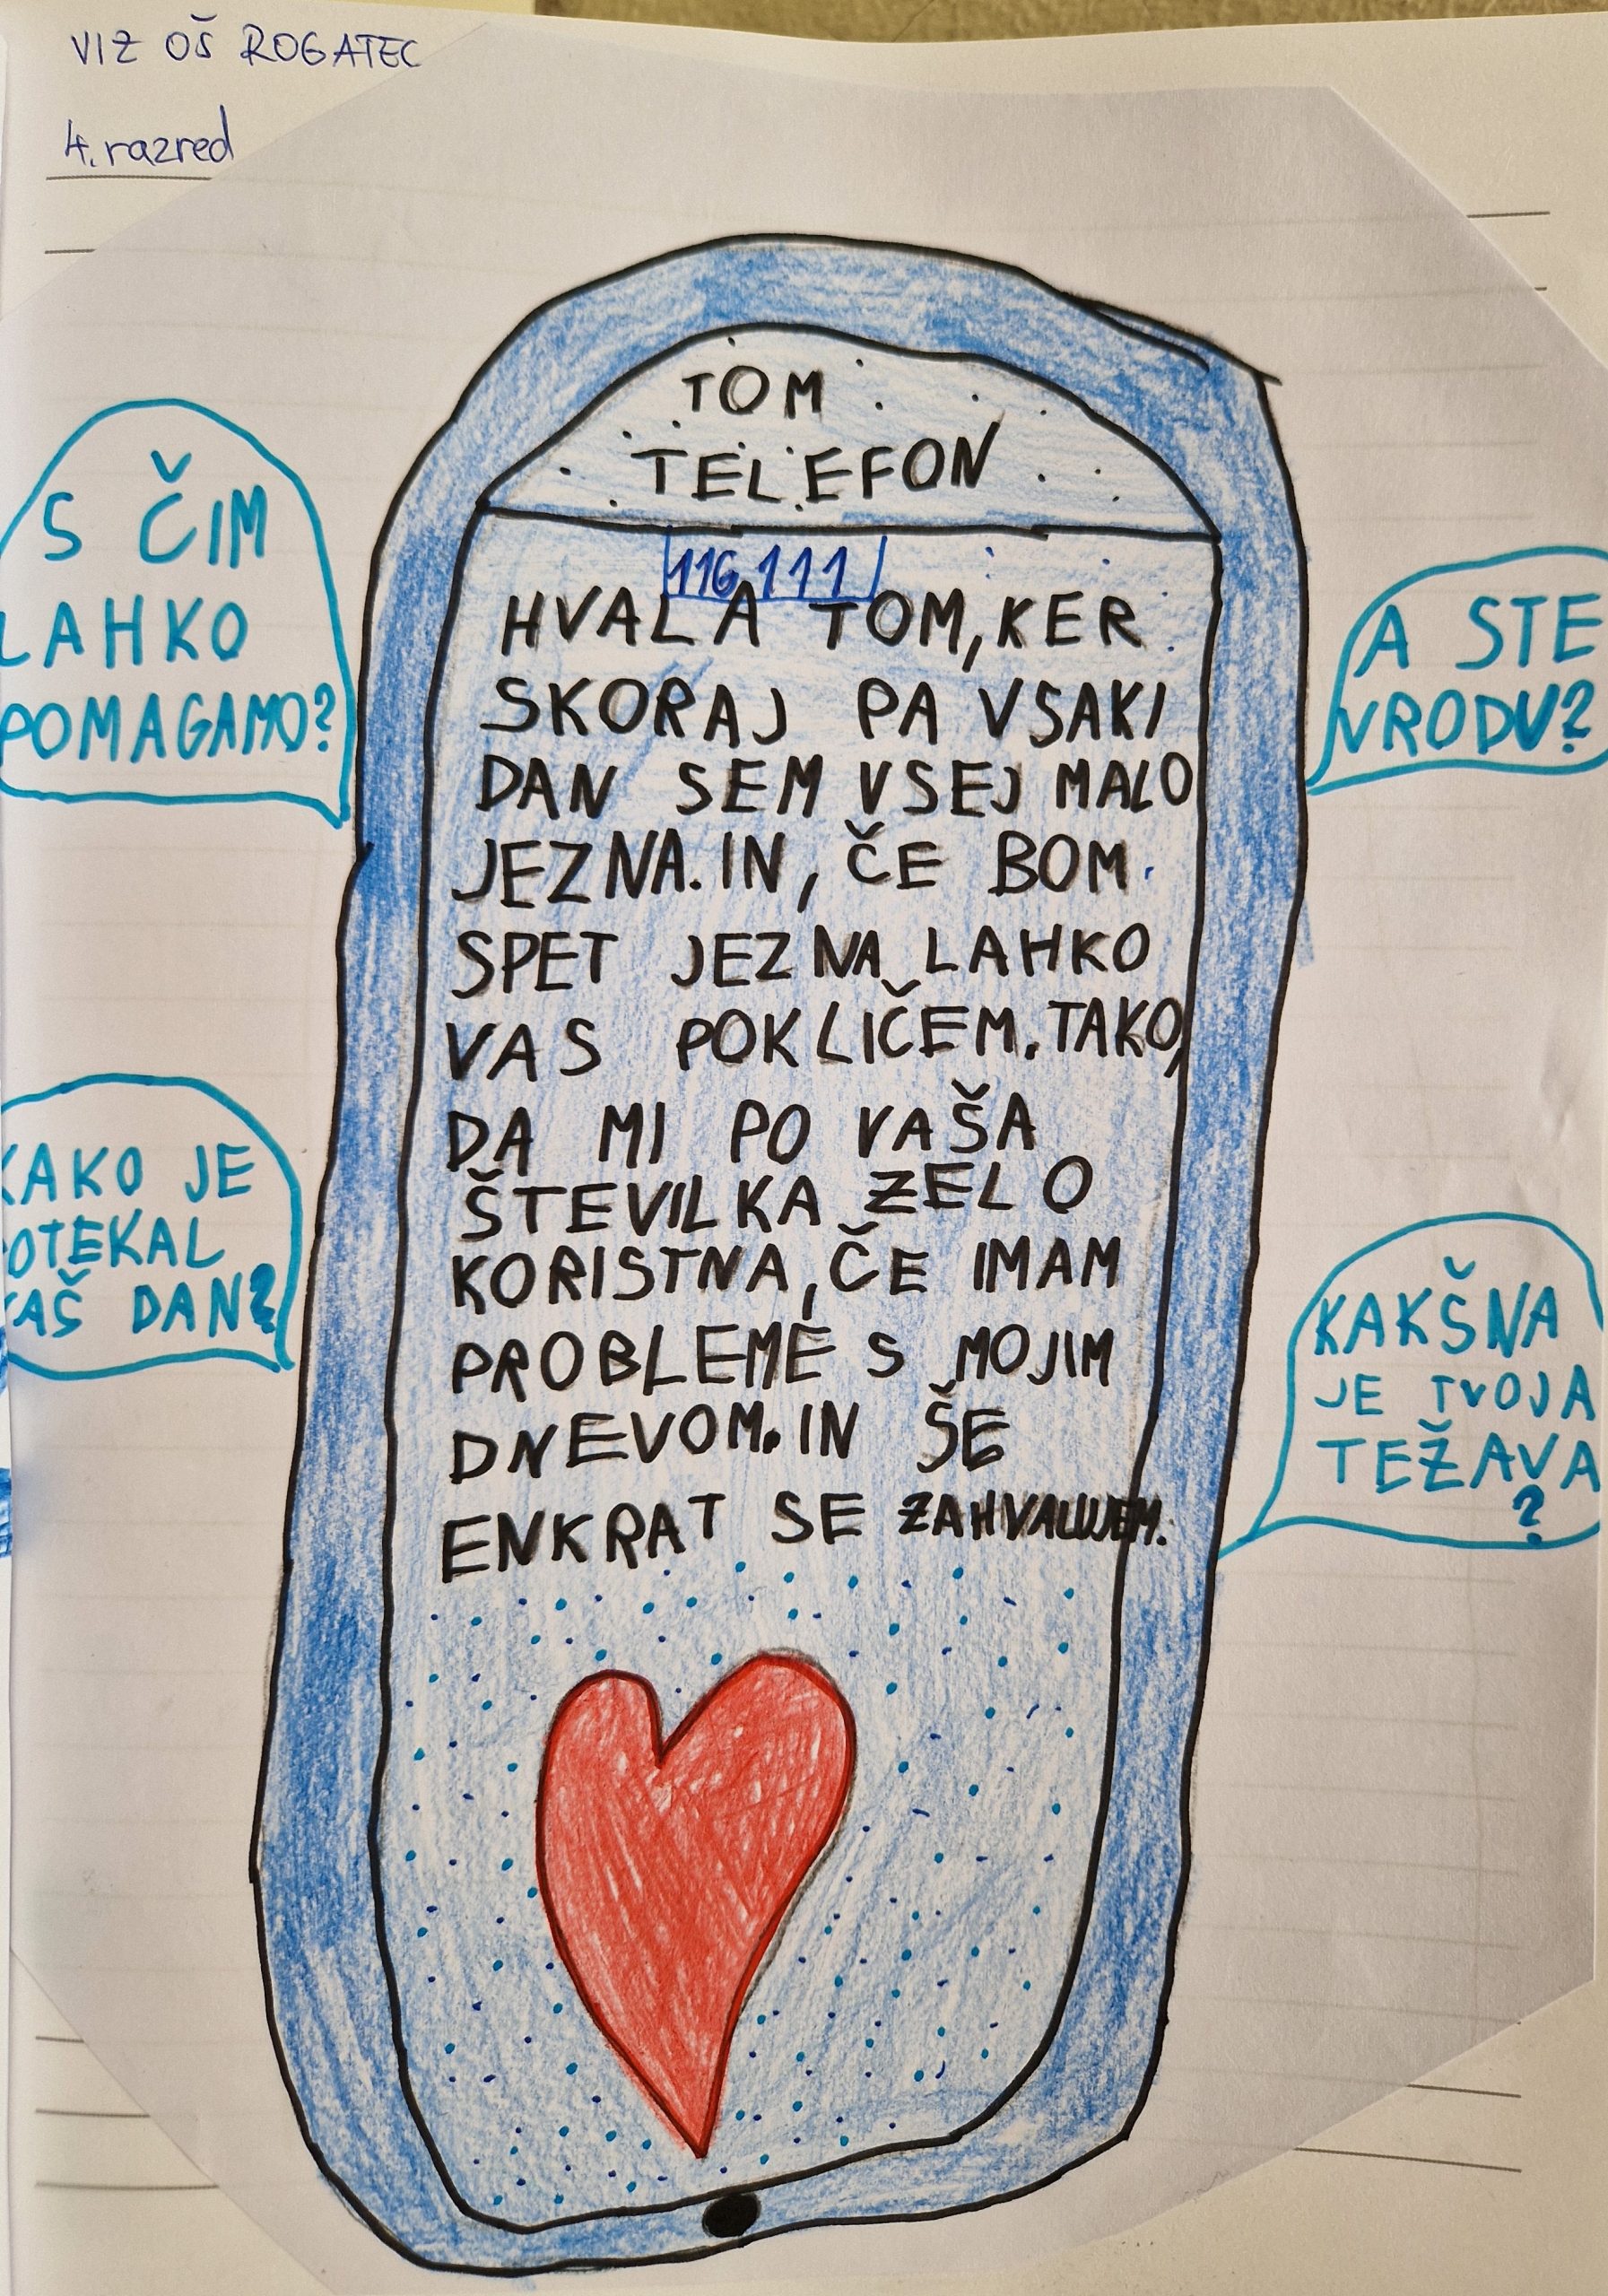 VIZ OŠ ROGATEC
4. razred
TOM
TELEFON
116 111
HVALA TOM, KER
SKORAJ PA VSAKI
DAN SEM VSEJ MALO
JEZNA. IN, ČE BOM
SPET JEZNA LAHKO
VAS POKLIČEM. TAKO,
DA MI PO VAŠA
ŠTEVILKA ZELO
KORISTNA, ČE IMAM
PROBLEME S MOJIM
DNEVOM. IN ŠE
ENKRAT SE ZAHVALUJEM.
S ČIM
LAHKO
POMAGAMO?
KAKO JE
OTEKAL
AŠ DAN?
A STE
VRODU?
KAKŠNA
JE TVOJA
TEŽAVA
?